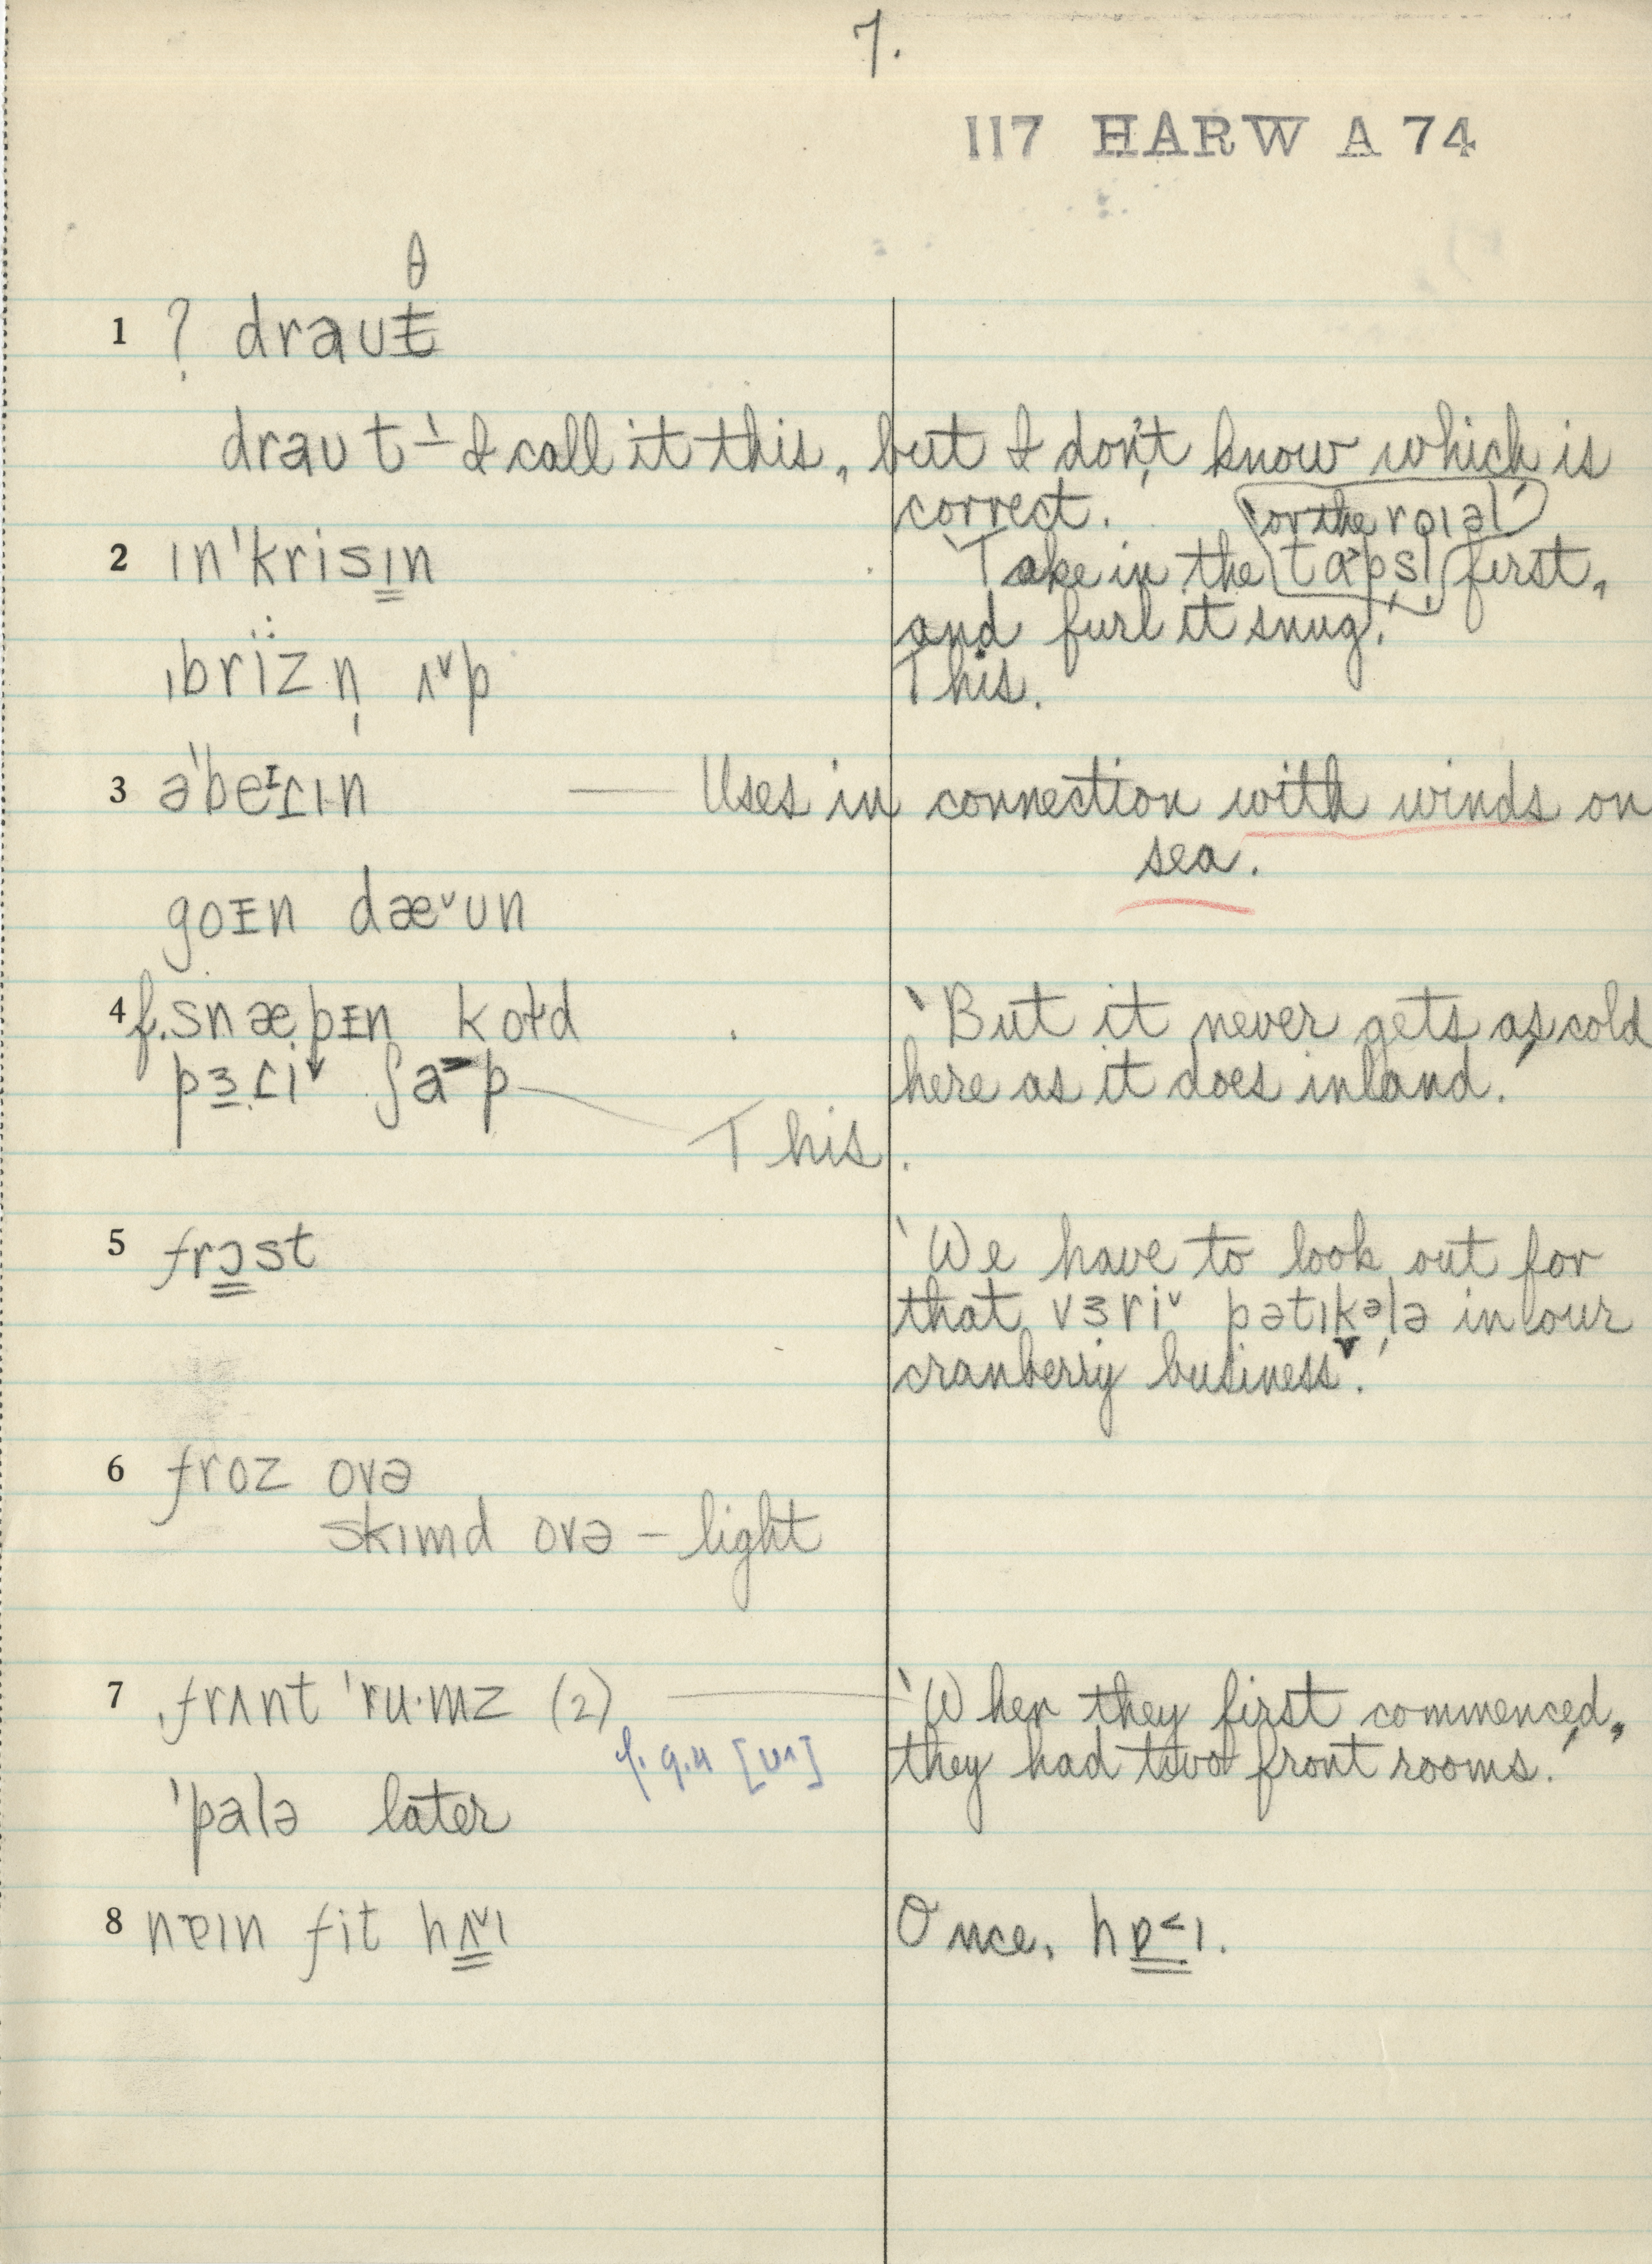 7.
117 HARW A 74
θ
1 ? draut
draut – I call it this, but I don't know which is
correct. 'or the rɔɪəl'
2 ɪn'krisɪn 'Take in the ta˃psl first,
and furl it snug.'
ˌbrïzn̩ ʌ˅p This.
3 ə'beɪɾɪn — Uses in connection with winds on
sea.
goɪn dæ˅ʊn
4 f. snæpɪn kold 'But it never gets as cold
pɜɾi˅ ʃa˃p here as it does inland.'
This.
5 frɔst 'We have to look out for
that vɜri˅ pətɪkələ in our
cranberry business.'
6 froz ovə
skɪmd ovə – light
7 ˌfrʌnt 'ru·mz (2) — 'When they first commenced,
they had two front rooms.'
'palə later
8 nɐɪn fit hʌ˅ɪ Once, hɒ˂ɪ.